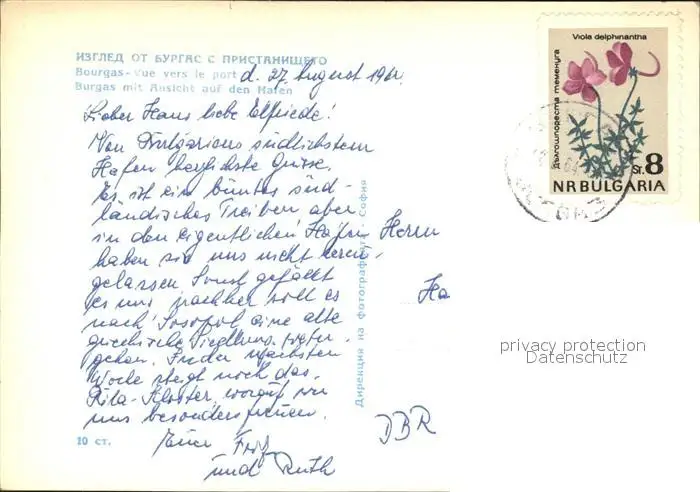 ИЗГЛЕД ОТ БУРГАС С ПРИСТАНИЩЕТО
Bourgas-Vue vers le port
Burgas mit Ansicht auf den Hafen
d. 27. August 196
Lieber Hans liebe Elfriede!
Von Bulgariens südlichstem
Hafen herzlichste Grüsse.
Es ist ein buntes süd-
ländisches Treiben aber
in den eigentlichen Hafen
haben sie uns nicht herein-
gelassen. Sonst gefällt
es uns, nachher soll es
nach Sosopol eine alte
griechische Siedlung
gehen. In der nächsten
Woche steigt noch das
Rila-Kloster, worauf wir
uns besonders freuen.
Eure Fritz
und Ruth
10 ст.
Дирекция на Фотографията София
Viola delphinantha
дългошпореста теменуга
Sт. 8
NRBULGARIA
64
Herrn
Ha
DBR
privacy protection
Datenschutz